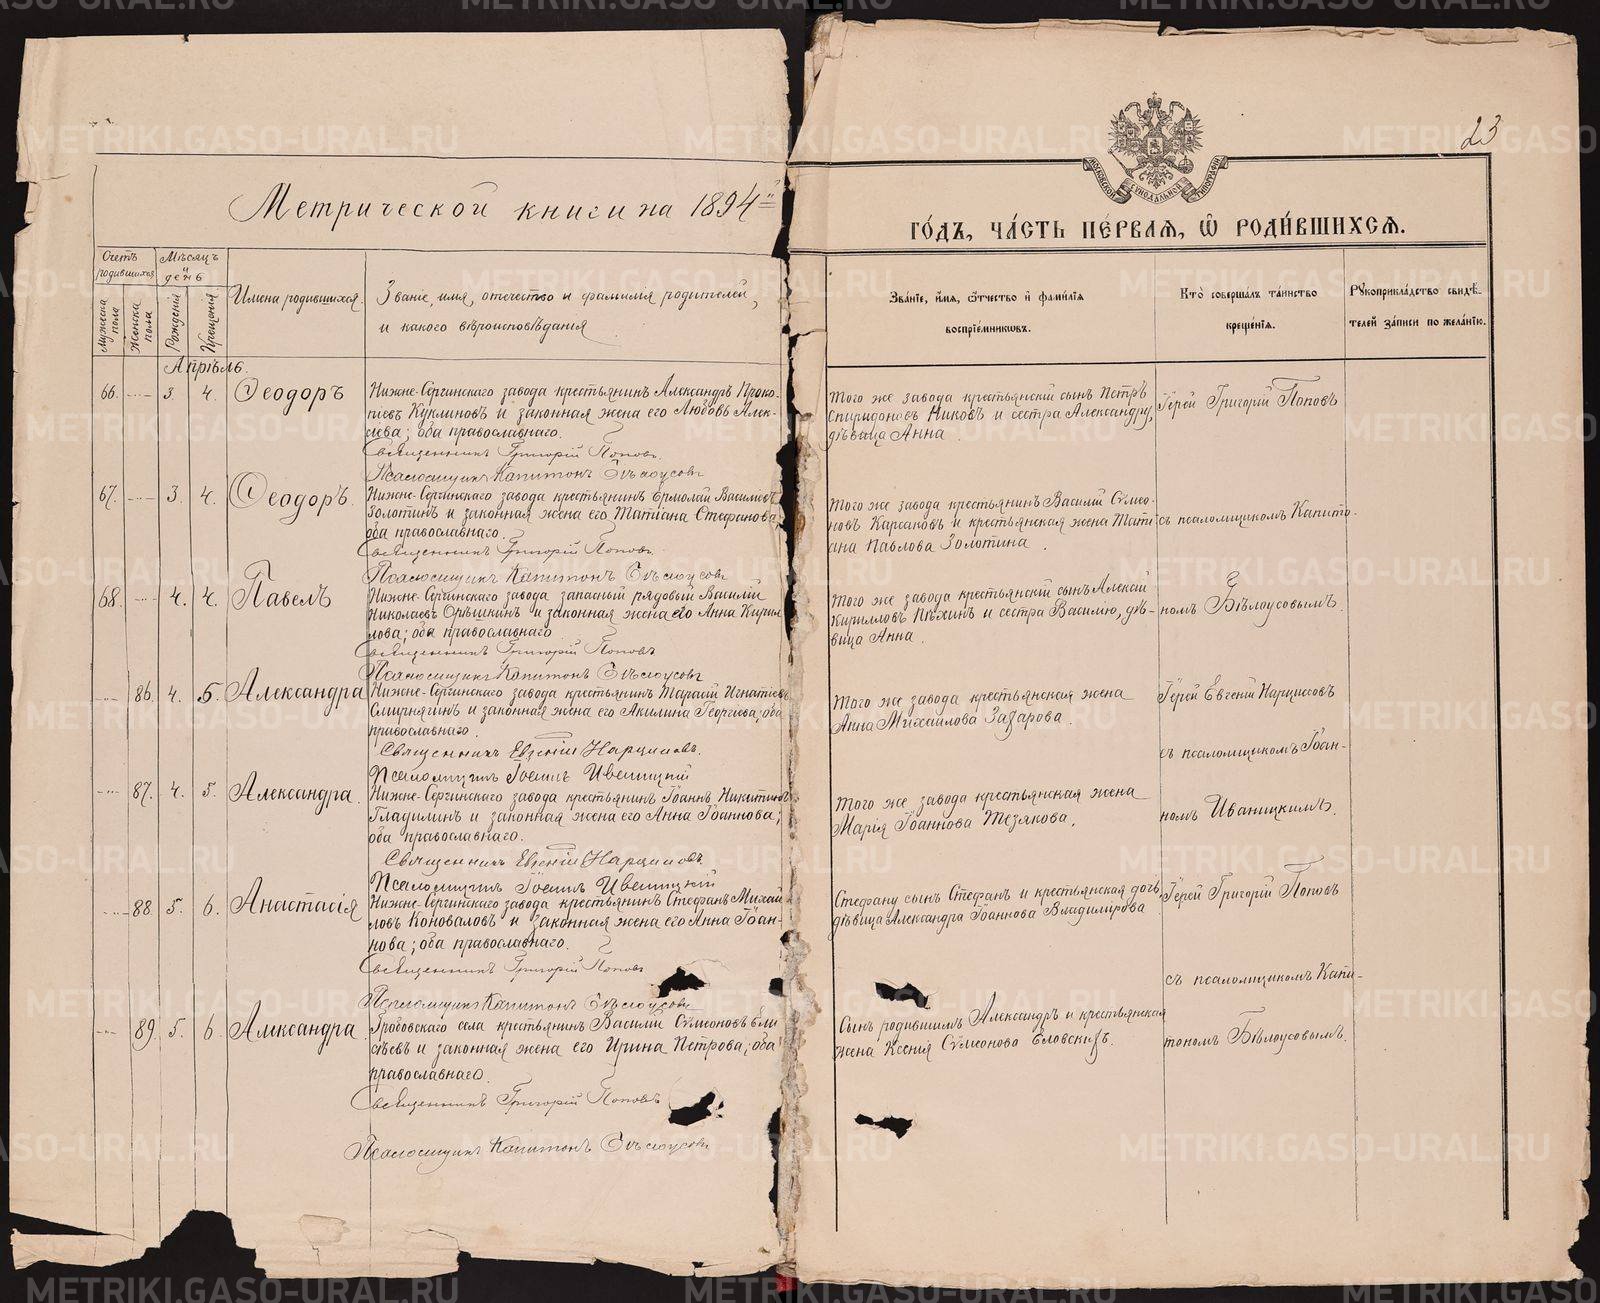 23
МОСКОВСКОЙ СѴНОДАЛЬНОЙ ТИПОГРАФІИ
Метрической книги на 1894й
ГО́ДЪ, ЧА́СТЬ ПЕ́РВАЯ, Ѡ҆ РОДИ́ВШИХСЯ.
Счетъ родившихся
Мѣсяцъ и день
Мужеска пола
Женска пола
Рожденія
Крещенія
Имена родившихся.
Званіе, имя, отчество и фамилія родителей,
и какого вѣроисповѣданія
Зва́ніе, и҆́мя, ѻ҆́тчество и҆ фами́лія
воспріе́мниковъ.
Кто̀ соверша́лъ та́инство
креще́нія.
Рꙋкоприкла́дство свидѣ́-
телей за́писи по жела́нію.
Апрѣль.
66. 3. 4. Ѳеодоръ
Нижне-Сергинскаго завода крестьянинъ Александръ Проко-
піевъ Куклиновъ и законная жена его Любовь Алек-
сіева; оба православнаго.
Священникъ Григорій Поповъ
Псаломщикъ Капитонъ Бѣлоусовъ
Того же завода крестьянскій сынъ Петръ
Спиридоновъ Никовъ и сестра Александру,
дѣвица Анна
Іерей Григорій Поповъ
67. 3. 4. Ѳеодоръ.
Нижне-Сергинскаго завода крестьянинъ Ермолай Василіевъ
Золотинъ и законная жена его Татіана Стефанова
оба православнаго.
Священникъ Григорій Поповъ.
Псаломщикъ Капитонъ Бѣлоусовъ
Того же завода крестьянинъ Василій Сѵмео-
новъ Карсаковъ и крестьянская жена Тати-
ана Павлова Золотина.
съ псаломщикомъ Капито-
68. 4. 4. Павелъ
Нижне-Сергинскаго завода запасный рядовый Василій
Николаевъ Орѣшкинъ и законная жена его Анна Кирил
лова; оба православнаго
Священникъ Григорій Поповъ
Псаломщикъ Капитонъ Бѣлоусовъ
Того же завода крестьянскій сынъ Алексій
Кирилловъ Пѣхинъ и сестра Василію, дѣ-
вица Анна.
номъ Бѣлоусовымъ
86. 4. 5. Александра
Нижне-Сергинскаго завода крестьянинъ Тарасій Игнатіевъ
Смирнягинъ и законная жена его Акилина Георгіева; оба
православнаго.
Священникъ Евгеній Нарциссовъ.
Псаломщикъ Іоаннъ Иваницкій
Того же завода крестьянская жена
Анна Михайлова Захарова.
Іерей Евгеній Нарциссовъ
съ псаломщикомъ Іоан-
87. 4. 5. Александра.
Нижне-Сергинскаго завода крестьянинъ Іоаннъ Никитинъ
Гладилинъ и законная жена его Анна Іоаннова;
оба православнаго.
Священникъ Евгеній Нарциссовъ.
Псаломщикъ Іоаннъ Иваницкій
Того же завода крестьянская жена
Марія Іоаннова Тезякова.
номъ Иваницкимъ.
88. 5. 6. Анастасія
Нижне-Сергинскаго завода крестьянинъ Стефанъ Михай
ловъ Коноваловъ и законная жена его Анна Іоан-
нова; оба православнаго.
Священникъ Григорій Поповъ
Псаломщикъ Капитонъ Бѣлоусовъ
Стефану сынъ Стефанъ и крестьянская дочь,
дѣвица Александра Іоаннова Владимірова
Іерей Григорій Поповъ
съ псаломщикомъ Капи-
89. 5. 6. Александра.
села крестьянинъ Василій Сѵмеоновъ Ели
сѣевъ и законная жена его Ирина Петрова; оба
православнаго.
Священникъ Григорій Поповъ
Псаломщикъ Капитонъ Бѣлоусовъ
Сынъ родившимъ Александръ и крестьянская
жена Ксенія Сѵмеонова Еловскихъ.
тономъ Бѣлоусовымъ.
METRIKI.GASO-URAL.RU